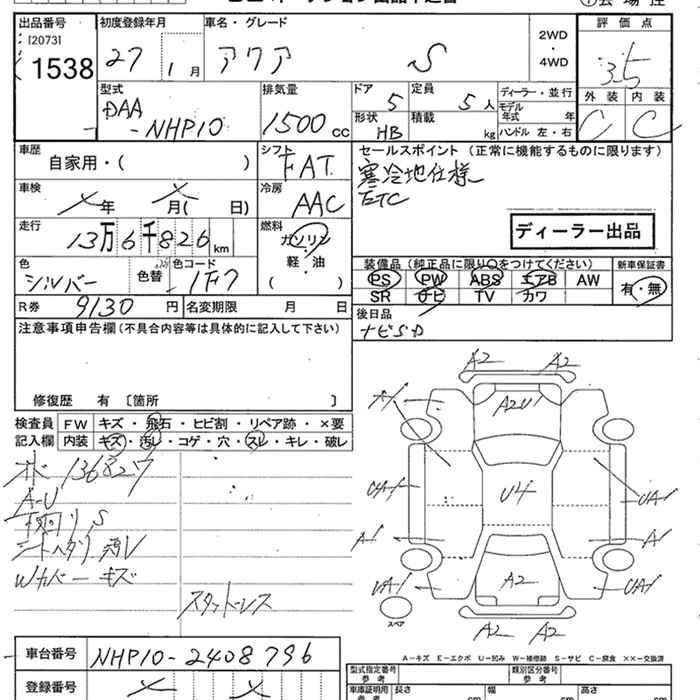 出品番号 初度登録年月 車名・グレード 2WD ・ 4WD 評価点
[2073]
1538 27 1月 アクア S 3.5
型式 排気量 ドア 5 定員 5人 ディーラー・並行 外装 内装
DAA
-NHP10 1500cc 形状 HB 積載 kg モデル年式 年 C C
ハンドル 左・右
車歴 シフト セールスポイント (正常に機能するものに限ります)
自家用・( ) FAT 寒冷地仕様
車検 冷房 ETC
年 月( 日) AAC
走行 燃料 ディーラー出品
13万6千826km ガソリン
軽・油
( )
色 色替 色コード 装備品 (純正品に限り○をつけてください) 新車保証書
シルバー 1F7 PS PW ABS エアB AW 有・無
R券 9130円 名変期限 月 日 SR ナビ TV カワ
注意事項申告欄(不具合内容等は具体的に記入して下さい) 後日品
ナビSD
修復歴 有 〔箇所 〕
検査員 FW キズ・飛石・ヒビ割・リペア跡・×要
記入欄 内装 キズ・汚レ・コゲ・穴・スレ・キレ・破レ
A2 A2
A1 A2U1
A-U
S
U4
UA1 UA1
A1 A1
Wカバーキズ
スタットレス
UA1 A2 UA1
スペア
A2 A2
A-キズ E-エクボ U-凹み W-補修跡 S-サビ C-腐食 ××-交換済
車台番号 NHP10-2408796
型式指定番号 参考 類別区分番号 参考
登録番号 車庫証明用 参考 長さ cm 幅 cm 高さ cm